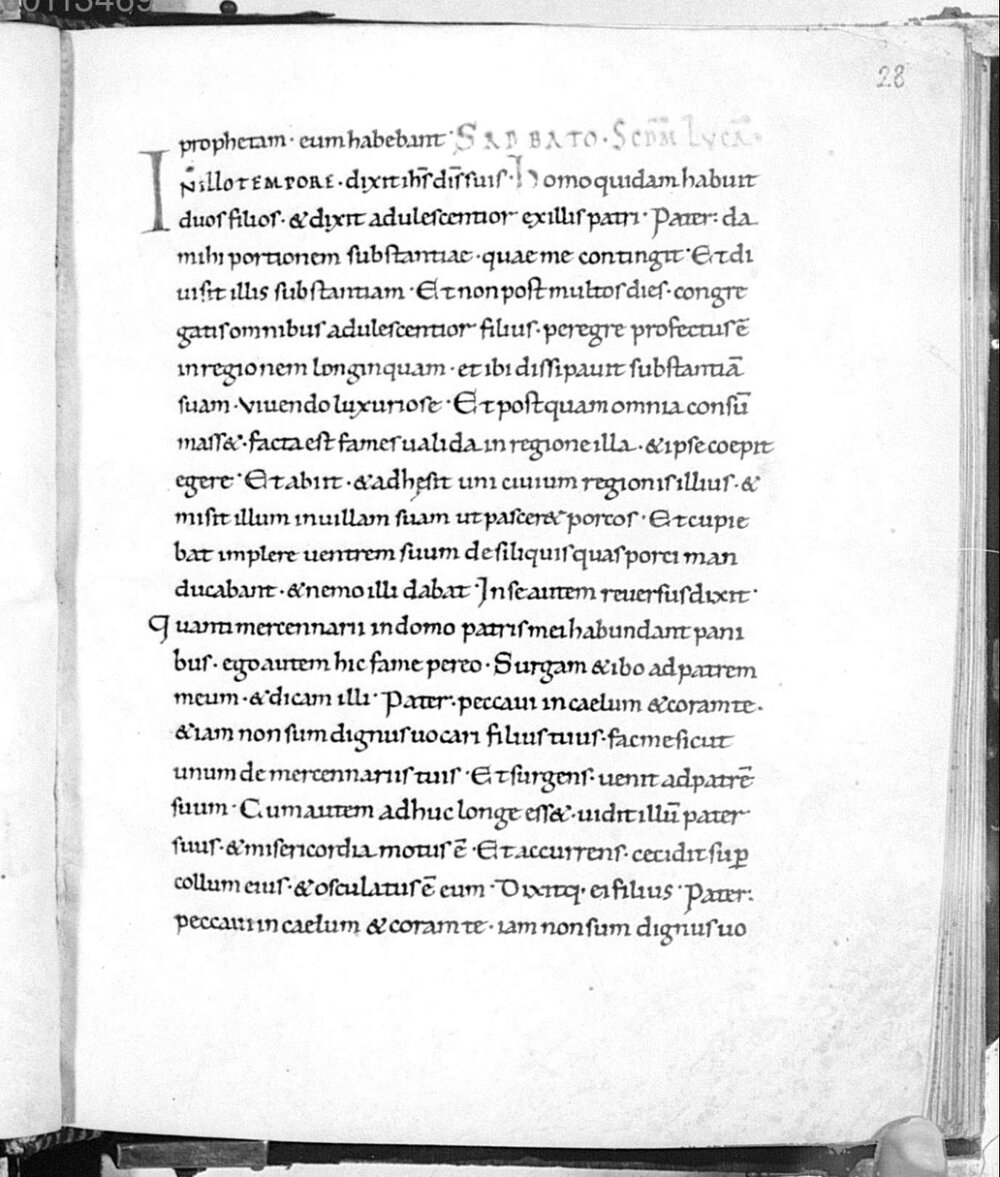 0113469
28
prophetam · eum habebant · SABBATO · SCDM LVCĀ ·
IN ILLO TEMPORE · dixit ihs̄ dis̄ suis · Homo quidam habuit
duos filios · & dixit adulescentior ex illis patri · Pater: da
mihi portionem substantiae · quae me contingit · Et di
uisit illis substantiam · Et non post multos dies · congre
gatis omnibus adulescentior filius · peregre profectus ē
in regionem longinquam · et ibi dissipauit substantiā
suam · viuendo luxuriose · Et postquam omnia consū
mass& · facta est fames ualida in regione illa · & ipse coepit
egere · Et abiit · & adhęsit uni ciuium regionis illius · &
misit illum in uillam suam ut pascer& porcos · Et cupie
bat implere uentrem suum de siliquis quas porci man
ducabant · & nemo illi dabat · In se autem reuersus dixit ·
Quanti mercennarii in domo patris mei habundant pani
bus · ego autem hic fame pereo · Surgam & ibo ad patrem
meum · & dicam illi · Pater · peccaui in caelum & coram te ·
& iam non sum dignus uocari filius tuus · fac me sicut
unum de mercennariis tuis · Et surgens · uenit ad patrē
suum · Cum autem adhuc longe ess& · uidit illū pater
suus · & misericordia motus ē · Et accurrens · cecidit sup̄
collum eius · & osculatus ē eum · Dixitq· ei filius · Pater:
peccaui in caelum & coram te · iam non sum dignus uo